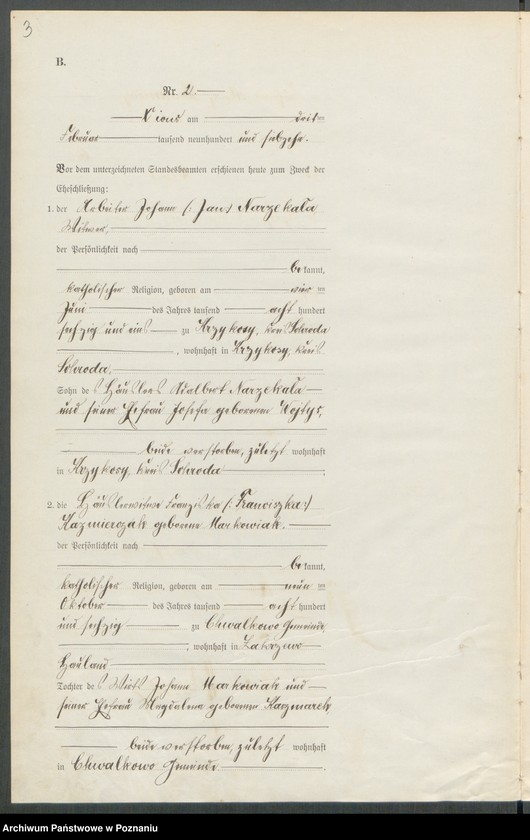 3
B.
Nr. 2.
Xions am dritten
Februar tausend neunhundert und siebzehn.
Vor dem unterzeichneten Standesbeamten erschienen heute zum Zweck der
Eheschließung:
1. der Arbeiter Johann (: Jan :) Narzekala
Witwer,
der Persönlichkeit nach
bekannt,
katholischer Religion, geboren am vier ten
Juni des Jahres tausend acht hundert
sechzig und eins zu Krzykosy, Kreis Schroda
, wohnhaft in Krzykosy, Kreis
Schroda,
Sohn des Häuslers Adalbert Narzekala
und seiner Ehefrau Josefa geborenen Wojtys,
beide verstorben, zuletzt wohnhaft
in Krzykosy, Kreis Schroda
2. die Häuslerwitwe Franziska (: Franciszka :)
Kazmierczak geborene Markowiak,
der Persönlichkeit nach
bekannt,
katholischer Religion, geboren am neun ten
Oktober des Jahres tausend acht hundert
und sechzig zu Chwalkowo Gemeinde,
, wohnhaft in Zakrzewo
Hauland
Tochter des Wirts Johann Markowiak und
seiner Ehefrau Magdalena geborenen Kaczmarek,
beide verstorben, zuletzt wohnhaft
in Chwalkowo Gemeinde
Archiwum Państwowe w Poznaniu